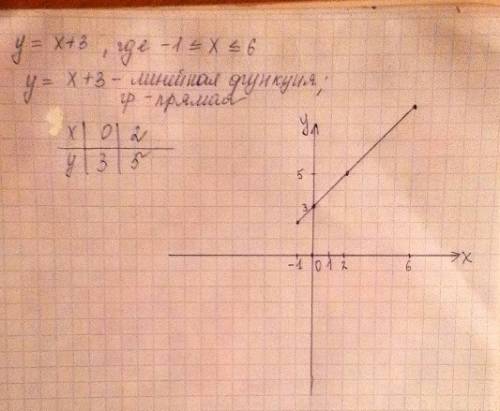 y = x+3, где -1 ≤ x ≤ 6
y = x+3 - линейная функция;
гр - прямая
x | 0 | 2
y | 3 | 5
y
5
3
-1 0 1 2 6 x